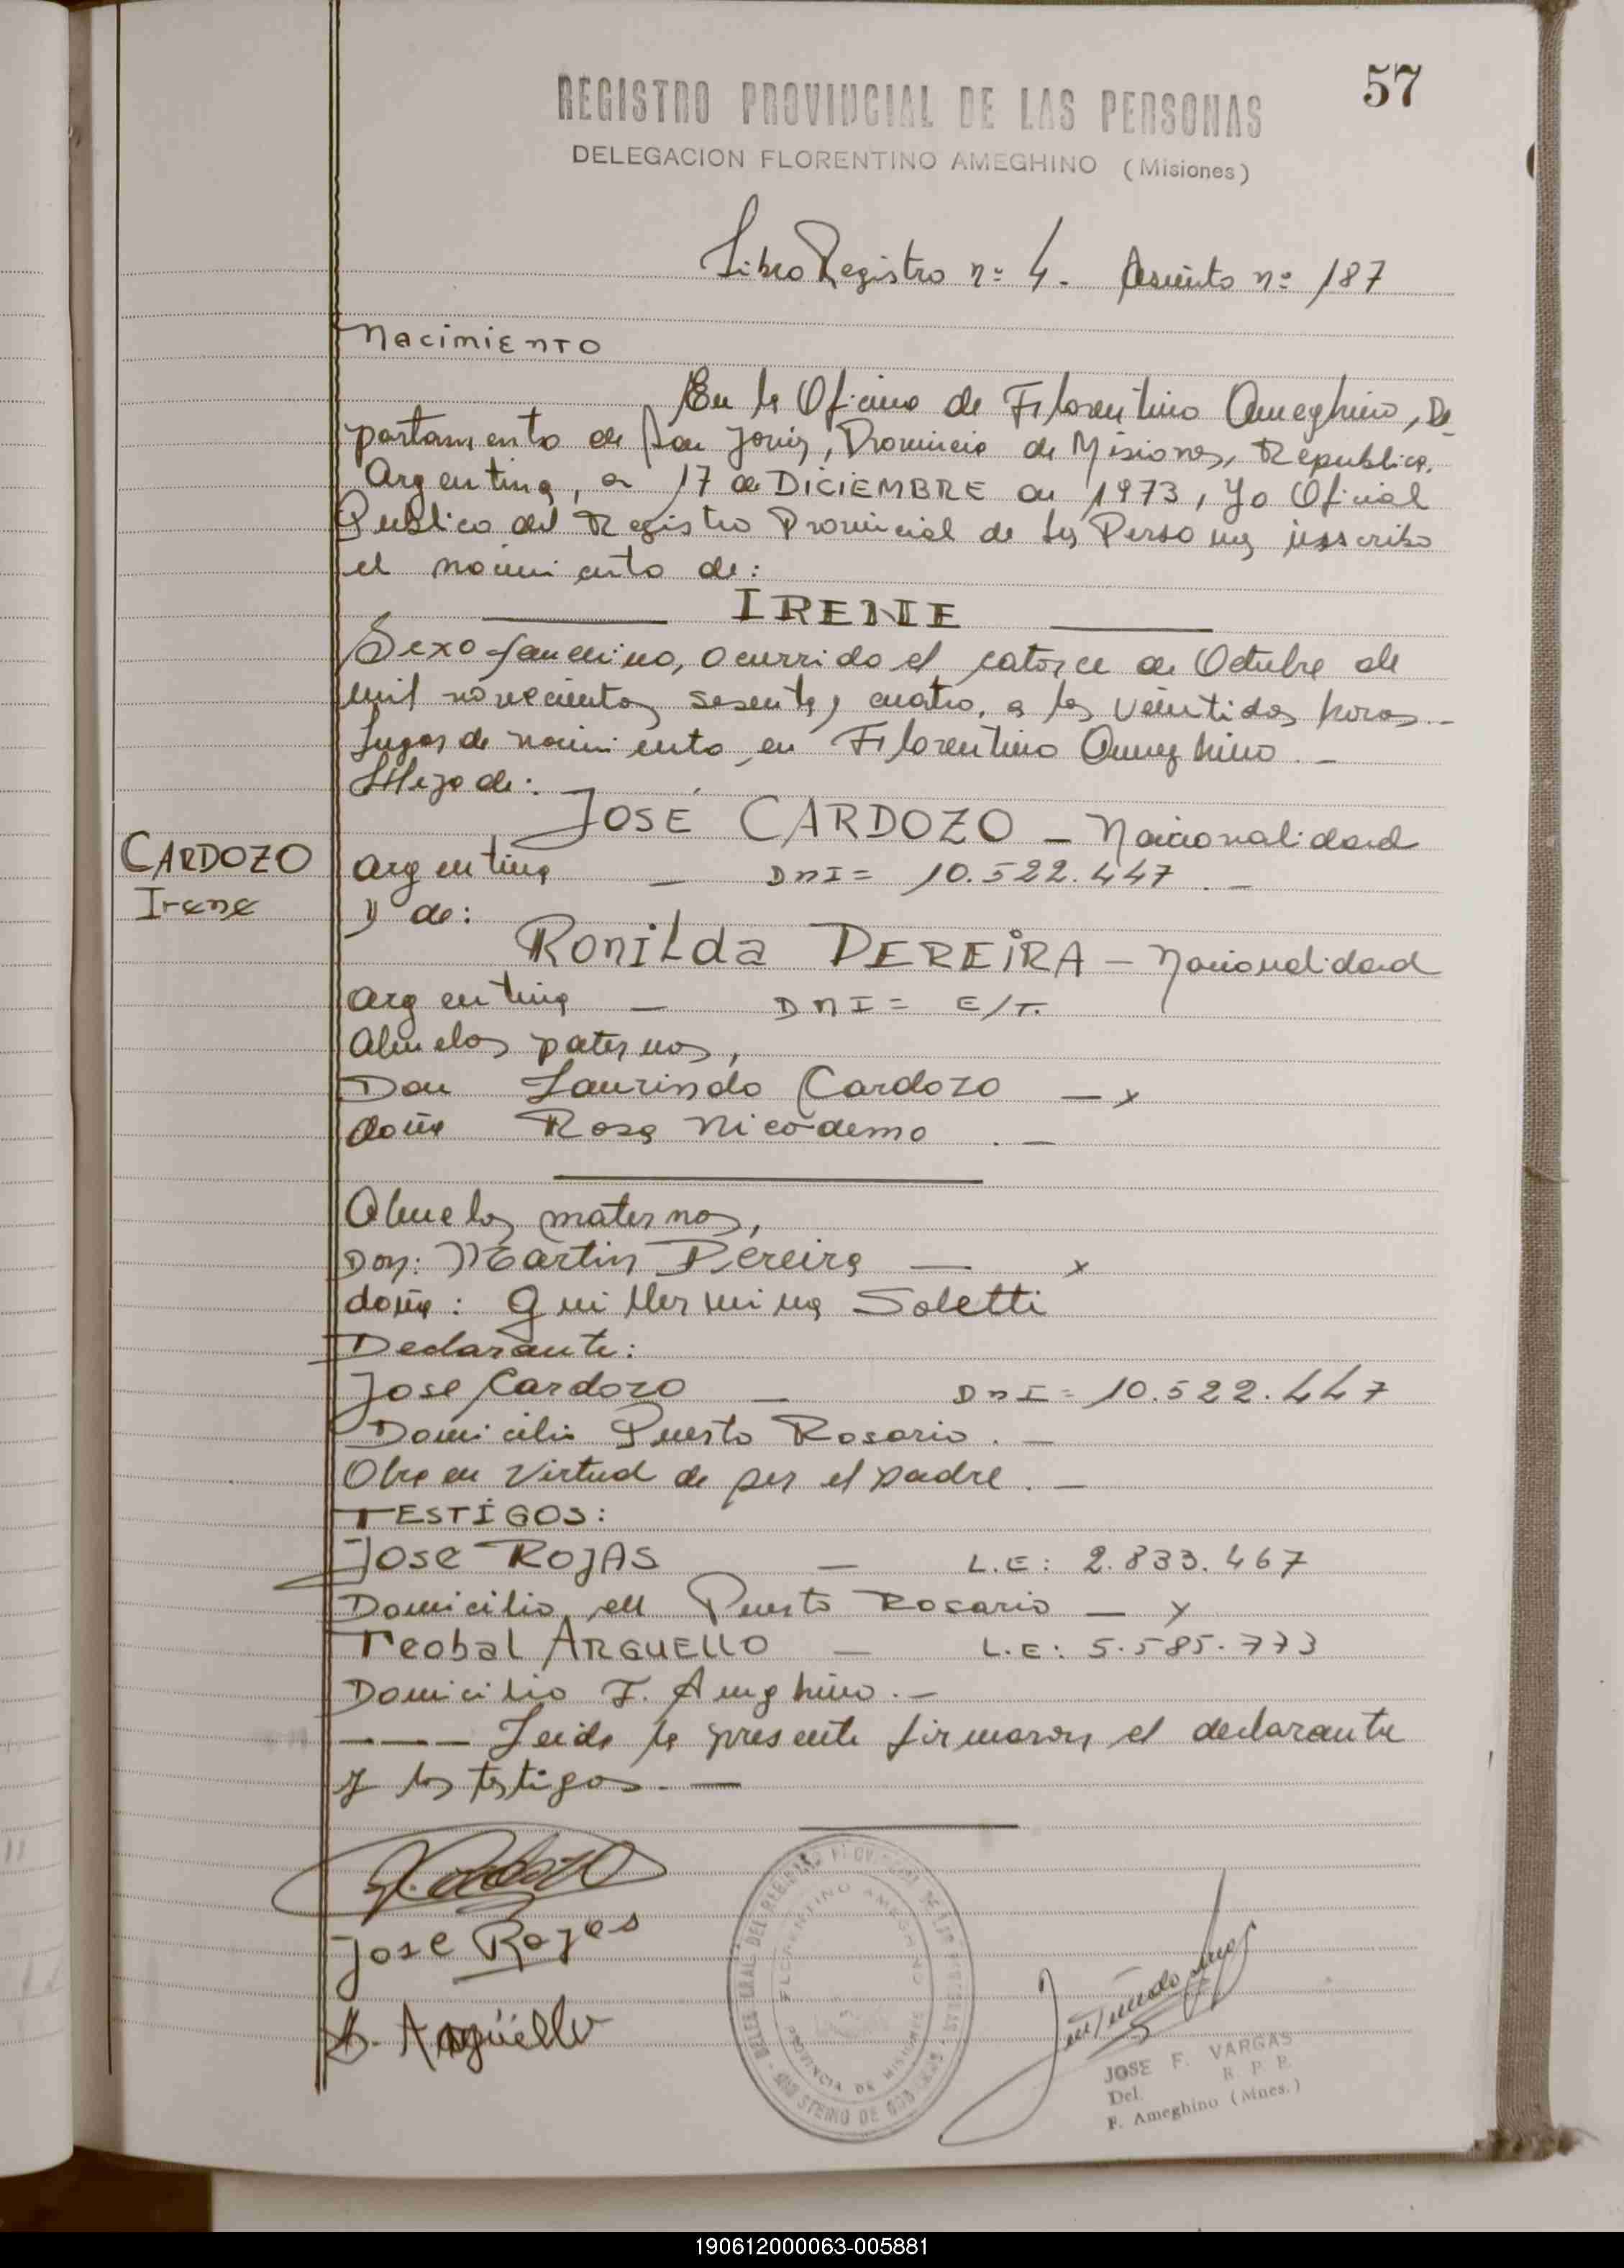 57
REGISTRO PROVINCIAL DE LAS PERSONAS
DELEGACION FLORENTINO AMEGHINO (Misiones)
Libro Registro nº 4. Asiento nº 187
Nacimiento
En la Oficina de Florentino Ameghino, De
partamento de San Javier, Provincia de Misiones, Republica
Argentina, a 17 de DICIEMBRE de 1973, Yo Oficial
Publico del Registro Provincial de las Personas inscribo
el nacimiento de:
IRENE
Sexo femenino, ocurrido el catorce de Octubre de
mil novecientos sesenta y cuatro, a las veintidos horas.-
Lugar de nacimiento en Florentino Ameghino.-
Hija de:
JOSÉ CARDOZO - Nacionalidad
CARDOZO
Irene
Argentina - DNI= 10.522.447.-
Y de:
Ronilda PEREIRA - Nacionalidad
Argentina - DNI= E/T.
Abuelos paternos,
Don Laurindo Cardozo - y
doña Rosa Nicodemo.-
Abuelos maternos,
Don: Martin Pereira - y
doña: Guillermina Soletti
Declarante:
Jose Cardozo - DNI= 10.522.447
Domicilio Puerto Rosario.-
Obra en virtud de ser el padre.-
TESTIGOS:
Jose ROJAS - L.E: 2.833.467
Domicilio en Puerto Rosario - y
Teobal ARGUELLO - L.E: 5.585.773
Domicilio F. Ameghino.-
---- Leida la presente firmaron el declarante
y los testigos.-
J. Cardozo
Jose Rojas
Argüello
FLORENTINO AMEGHINO
PROVINCIA DE MISIONES
JOSE F. VARGAS
Del. R. P. P.
F. Ameghino (Mnes.)
190612000063-005881